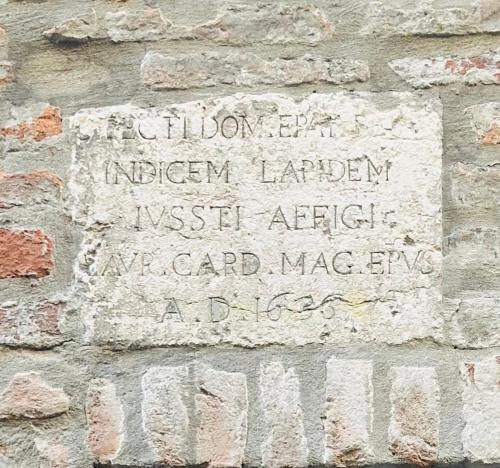 DOM. EPAT
INDICEM LAPIDEM
IVSSTI AFFIGI
AVR. CARD. MAG. EPVS
A. D. 1636